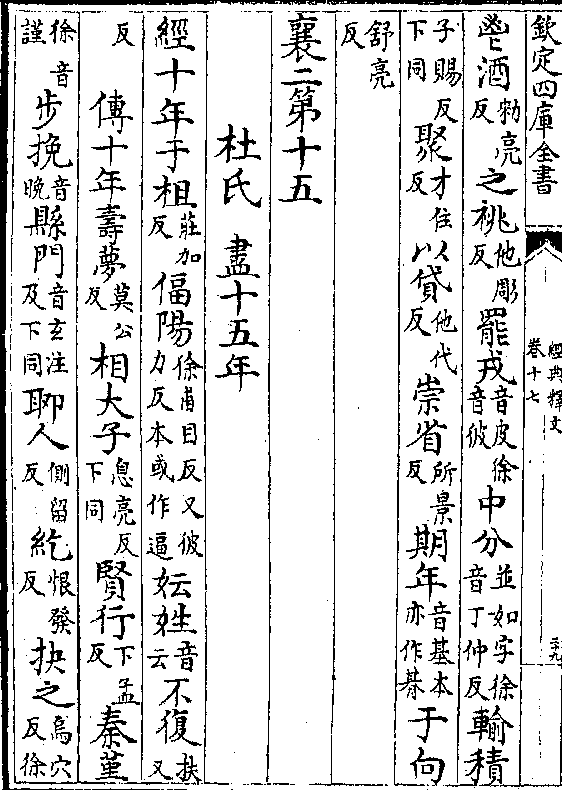 欽定四庫全書
經典釋文
卷十七
三十九
鬯酒勑亮反之祧他彫反罷戎音皮徐音彼中分並如字徐音丁仲反輸積
子賜反下同聚才住反以貸他代反崇省所景反期年音基本亦作朞于向
舒亮反
襄二第十五
杜氏 盡十五年
經十年于柤莊加反偪陽徐甫目反又彼力反本或作逼妘姓音云不復扶又
反
傳十年壽夢莫公反相大子息亮反下同賢行下孟反秦堇
徐音謹步挽音晚縣門音玄注及下同耶人側留反紇恨發反抉之烏穴反徐